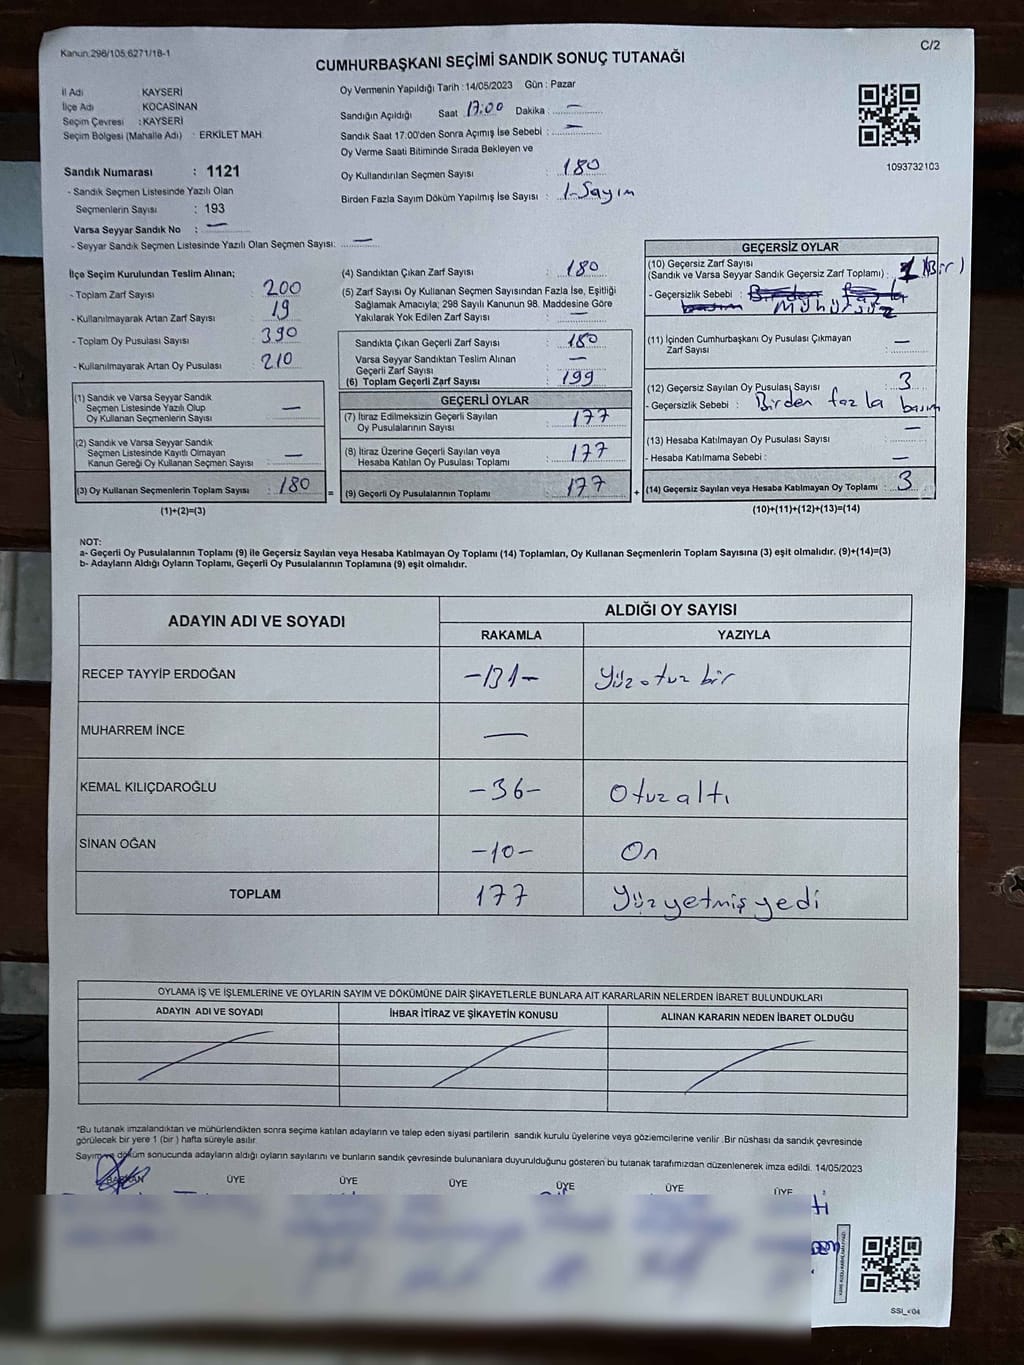 Kanun:298/105;6271/18-1
C/2
CUMHURBAŞKANI SEÇİMİ SANDIK SONUÇ TUTANAĞI
İl Adı : KAYSERİ
İlçe Adı : KOCASİNAN
Seçim Çevresi : KAYSERİ
Seçim Bölgesi (Mahalle Adı) : ERKİLET MAH.
Oy Vermenin Yapıldığı Tarih : 14/05/2023 Gün : Pazar
Sandığın Açıldığı Saat 17:00 Dakika : —
Sandık Saat 17:00'den Sonra Açımış İse Sebebi : —
Oy Verme Saati Bitiminde Sırada Bekleyen ve
Oy Kullandırılan Seçmen Sayısı : 180
Birden Fazla Sayım Döküm Yapılmış İse Sayısı : 1-Sayım
1093732103
Sandık Numarası : 1121
- Sandık Seçmen Listesinde Yazılı Olan
Seçmenlerin Sayısı : 193
Varsa Seyyar Sandık No : —
- Seyyar Sandık Seçmen Listesinde Yazılı Olan Seçmen Sayısı: —
İlçe Seçim Kurulundan Teslim Alınan;
- Toplam Zarf Sayısı : 200
- Kullanılmayarak Artan Zarf Sayısı : 19
- Toplam Oy Pusulası Sayısı : 390
- Kullanılmayarak Artan Oy Pusulası : 210
(1) Sandık ve Varsa Seyyar Sandık
Seçmen Listesinde Yazılı Olup
Oy Kullanan Seçmenlerin Sayısı : —
(2) Sandık ve Varsa Seyyar Sandık
Seçmen Listesinde Kayıtlı Olmayan
Kanun Gereği Oy Kullanan Seçmen Sayısı : —
(3) Oy Kullanan Seçmenlerin Toplam Sayısı : 180
(1)+(2)=(3)
(4) Sandıktan Çıkan Zarf Sayısı : 180
(5) Zarf Sayısı Oy Kullanan Seçmen Sayısından Fazla İse, Eşitliği
Sağlamak Amacıyla; 298 Sayılı Kanunun 98. Maddesine Göre
Yakılarak Yok Edilen Zarf Sayısı : —
Sandıkta Çıkan Geçerli Zarf Sayısı : 180
Varsa Seyyar Sandıktan Teslim Alınan
Geçerli Zarf Sayısı : —
(6) Toplam Geçerli Zarf Sayısı : 199
GEÇERLİ OYLAR
(7) İtiraz Edilmeksizin Geçerli Sayılan
Oy Pusulalarının Sayısı : 177
(8) İtiraz Üzerine Geçerli Sayılan veya
Hesaba Katılan Oy Pusulası Toplamı : 177
= (9) Geçerli Oy Pusulalarının Toplamı : 177 +
GEÇERSİZ OYLAR
(10) Geçersiz Zarf Sayısı
(Sandık ve Varsa Seyyar Sandık Geçersiz Zarf Toplamı) : 1 (Bir)
- Geçersizlik Sebebi : Birden fazla
basım Mühürsüz
(11) İçinden Cumhurbaşkanı Oy Pusulası Çıkmayan
Zarf Sayısı : —
(12) Geçersiz Sayılan Oy Pusulası Sayısı : 3
- Geçersizlik Sebebi : Birden fazla basım
(13) Hesaba Katılmayan Oy Pusulası Sayısı : —
- Hesaba Katılmama Sebebi : —
(14) Geçersiz Sayılan veya Hesaba Katılmayan Oy Toplamı : 3
(10)+(11)+(12)+(13)=(14)
NOT:
a- Geçerli Oy Pusulalarının Toplamı (9) ile Geçersiz Sayılan veya Hesaba Katılmayan Oy Toplamı (14) Toplamları, Oy Kullanan Seçmenlerin Toplam Sayısına (3) eşit olmalıdır. (9)+(14)=(3)
b- Adayların Aldığı Oyların Toplamı, Geçerli Oy Pusulalarının Toplamına (9) eşit olmalıdır.
ADAYIN ADI VE SOYADI
ALDIĞI OY SAYISI
RAKAMLA YAZIYLA
RECEP TAYYİP ERDOĞAN -131- Yüz otuz bir
MUHARREM İNCE —
KEMAL KILIÇDAROĞLU -36- Otuz altı
SİNAN OĞAN -10- On
TOPLAM 177 Yüz yetmiş yedi
OYLAMA İŞ VE İŞLEMLERİNE VE OYLARIN SAYIM VE DÖKÜMÜNE DAİR ŞİKAYETLERLE BUNLARA AİT KARARLARIN NELERDEN İBARET BULUNDUKLARI
ADAYIN ADI VE SOYADI İHBAR İTİRAZ VE ŞİKAYETİN KONUSU ALINAN KARARIN NEDEN İBARET OLDUĞU
*Bu tutanak imzalandıktan ve mühürlendikten sonra seçime katılan adayların ve talep eden siyasi partilerin sandık kurulu üyelerine veya gözlemcilerine verilir .Bir nüshası da sandık çevresinde
görülecek bir yere 1 (bir ) hafta süreyle asılır.
Sayım ve döküm sonucunda adayların aldığı oyların sayılarını ve bunların sandık çevresinde bulunanlara duyurulduğunu gösteren bu tutanak tarafımızdan düzenlenerek imza edildi. 14/05/2023
BAŞKAN ÜYE ÜYE ÜYE ÜYE ÜYE ÜYE